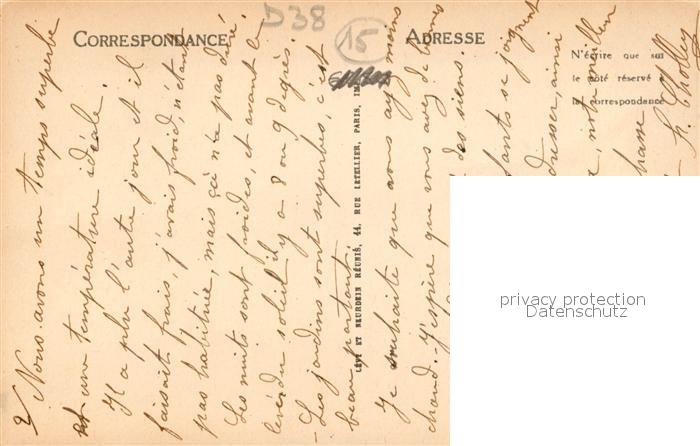 D38
15
CORRESPONDANCE
ADRESSE
N'écrire que sur
le côté réservé à
la correspondance
LÉVY ET NEURDEIN RÉUNIS, 44, RUE LETELLIER, PARIS, IM
2/ Nous avons un temps superbe
et une température idéale.
Il a plu l'autre jour et il
faisait frais, j'avais froid, n'étant
pas habituée, mais çà n'a pas duré.
Les nuits sont froides, et avant le
levé du soleil il y a 8 ou 9 degrés.
Les jardins sont superbes, c'est
beau partout.
Je souhaite que vous ayez moins
chaud. J'espère que vous avez de bonnes
des siens.
se joignent
dresser, ainsi
notre meilleur
h. Cholley
privacy protection
Datenschutz